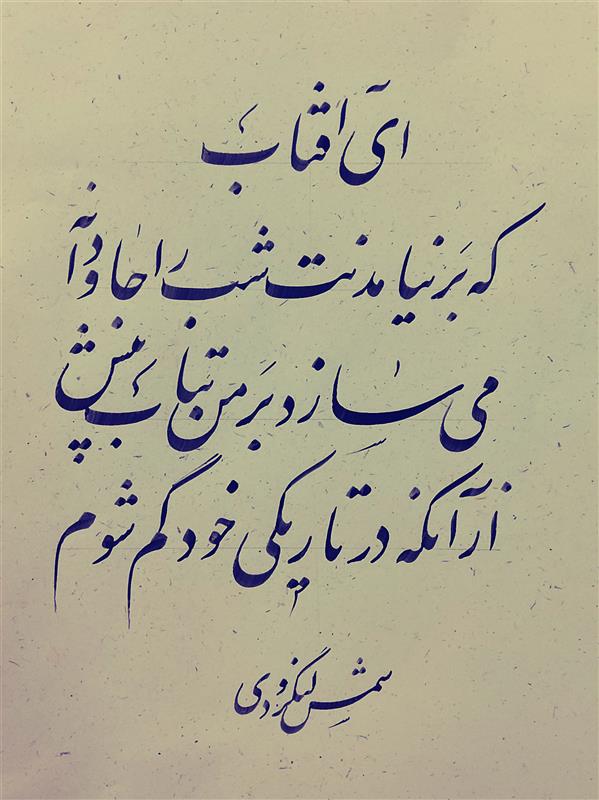 ای آفتاب
که برنیامدنت شب را جاودانه
می‌سازد بر من بتاب پیش
از آنکه در تاریکی خود گم شوم
شمس لنگرودی